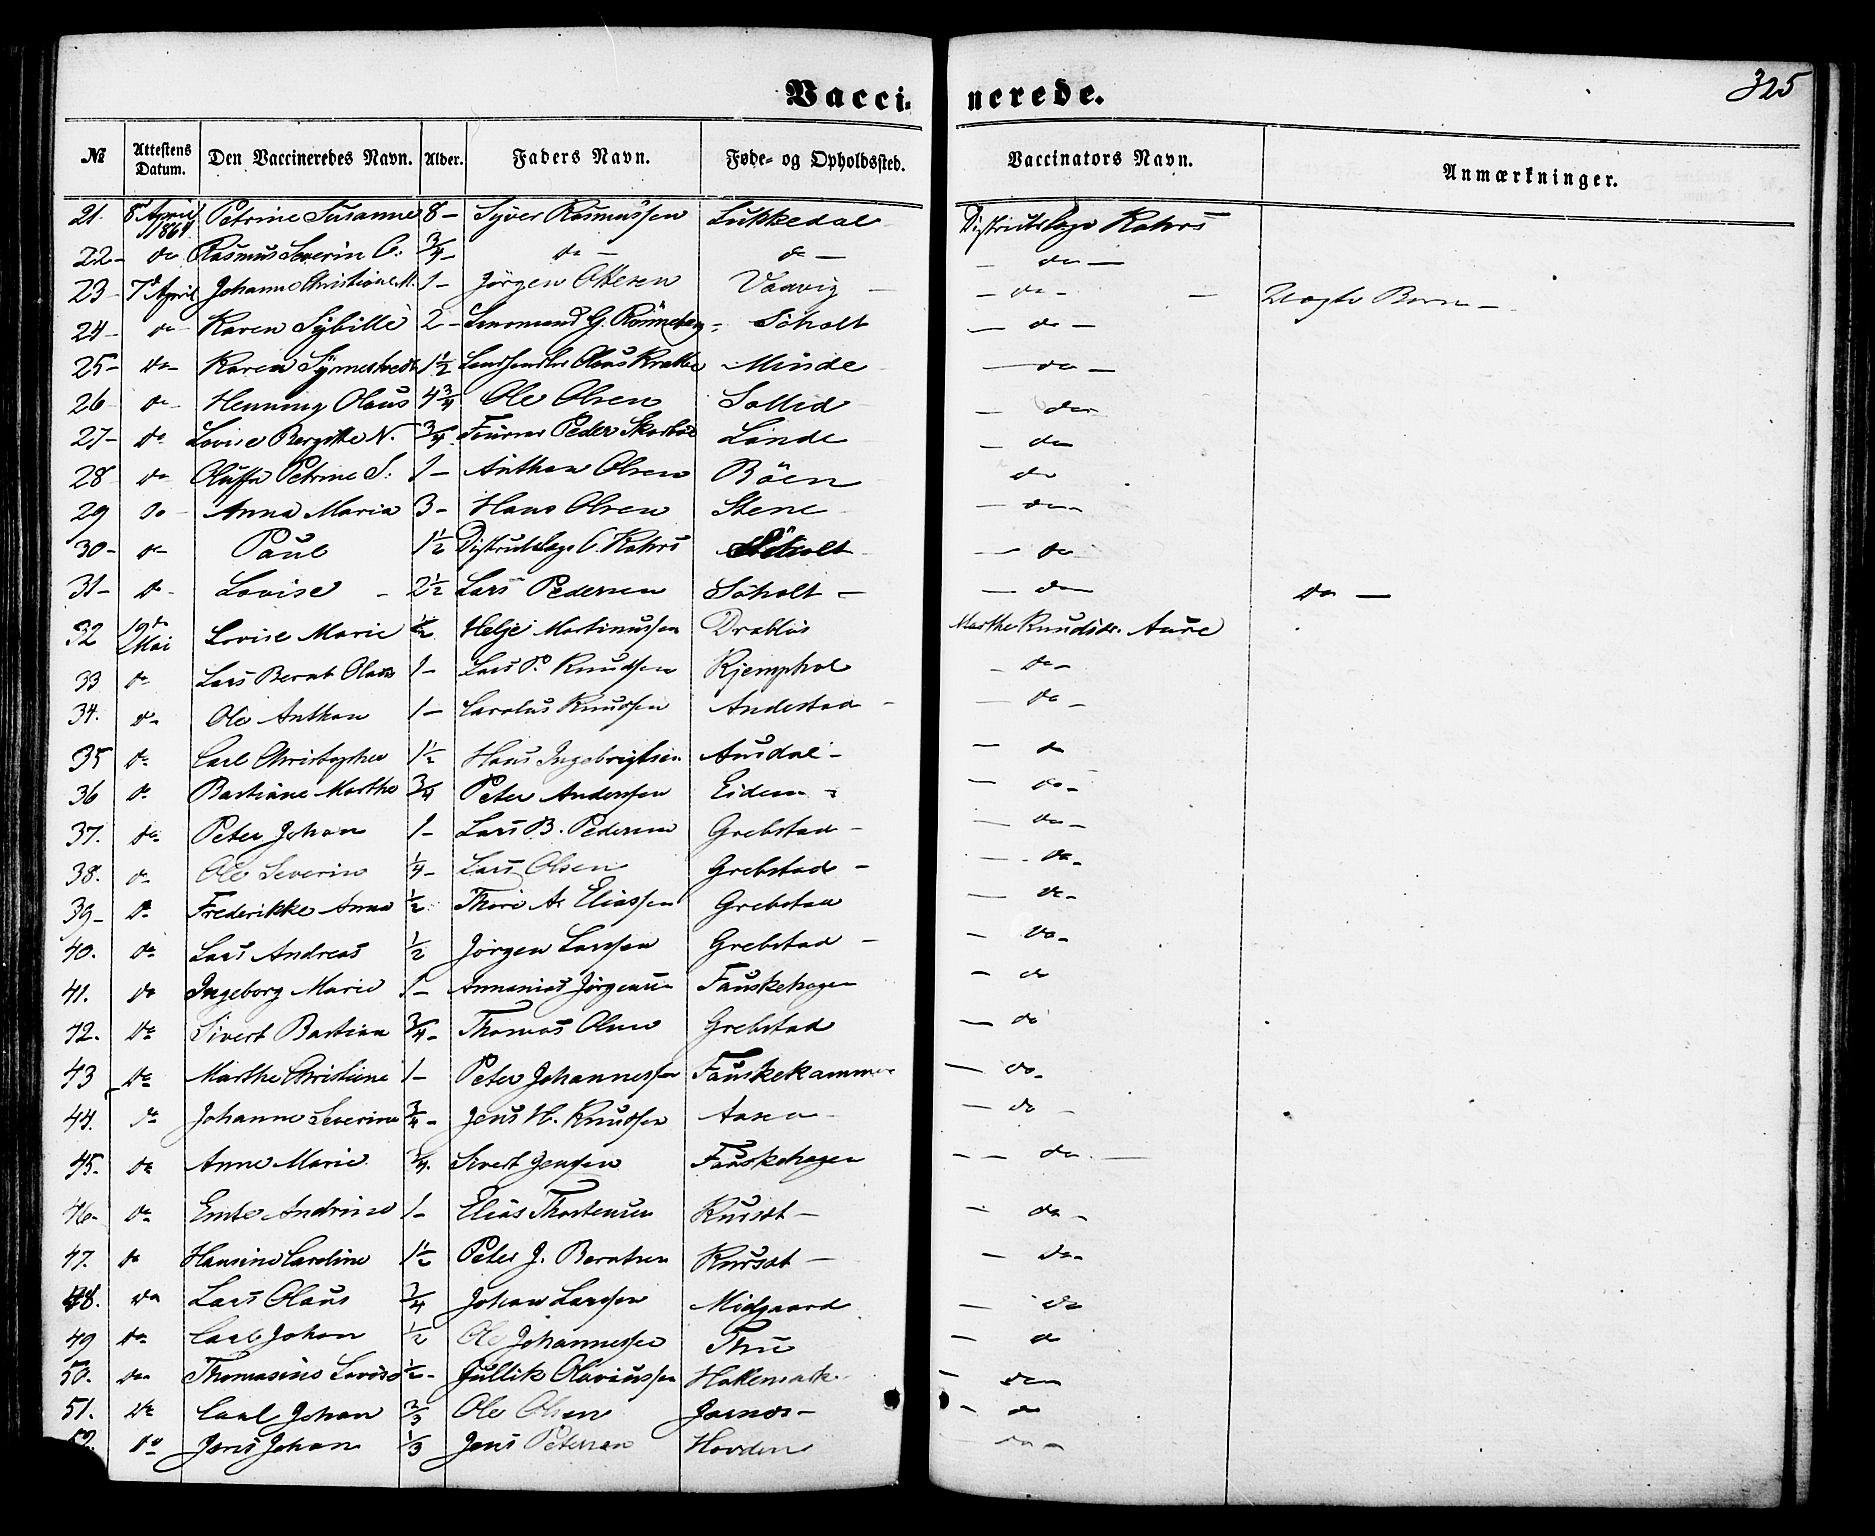 325
Vacci- nerede.
№ Attestens Datum. Den Vaccineredes Navn. Alder. Faders Navn. Føde- og Opholdssted. Vaccinators Navn. Anmærkninger.
21. 8de April 1864 Petrine Susanne 8 - Syver Rasmussen Lukkedal Distriktslæge Rohrs
22 - do Rasmus Severin C. 3/4 - do - do - - do -
23 - 7de April Johanne Christiane M. 1 - Jörgen Ottesen Vaavig - - do - - Uægte Børn -
24 - do Karen Sybille 2 - G. Rönneberg - Söholt - do -
25 - do - Karen 1 1/2 Olaus Minde - do -
26 do - Henning Olaus 4 3/4 Ole Olsen Sollid - do
27 - do Lovise Bergitte N. 3/4 Peder Linde - do
28 - do Oluffa Petrine S. 1 - Anthon Olsen Böen do
29 do - Anna Maria 3 - Hans Olsen Stene - do -
30 - do - Paul 1 1/2 Distriktslæge C. Rohrs Söholt - do
31 - do - Lovise - 2 1/2 Lars Pedersen Söholt - - do do -
32 19de Mai Lovise Marie 1/2 Helje Martinussen Drabløs Marthe Knudsdr. Aure
33 do Lars Bernt Olaus 1 - Lars P. Knudsen Kjemphol - do -
34. do - Ole Anthon 1 - Carolus Knudsen Andestad - - do -
35 do - Carl Christopher 1 1/2 Hans Ingebrigtsen Ausdal - - do
36 do Bastiane Marthe 3/4 Peter Anderssen Eidem - - do -
37. do - Peter Johan 1 - Lars B. Pedersen Grebstad - - do -
38. do - Ole Severin 1/4 - Lars Olsen Grebstad - - do -
39 - do Frederikke Anna 1/2 Thore A. Eliassen Grebstad - do -
40. do Lars Andreas 1/2 Jörgen Larssen Grebstad - - do -
41. do Ingeborg Marie 1 - Annanias Jörgensen Fauskehagen - do
42. do Sivert Bastian 3/4 - Thomas Olsen Grebstad - do
43 do Marthe Christiane 1 - Peter Johannessen Fauskekammen - do -
44. do Johanne Severine 3/4 - Jens H. Knudsen Aasen - - do -
45. do Anne Marie 1/4. Sivert Jenssen Fauskehagen - - do -
46 - do - Andrine 1 - Elias Thorstensen Kurset - - do -
47. do Hansine Caroline 1 1/2 Peter J. Berntsen Kurset - - do -
48. do Lars Olaus 3/4 Johan Larssen Midgaard - do
49 do - Carl Johan 1/2 Ole Johannessen Thu - do
50. do Thomasine Lovise 1/2 - Gullik Olaviussen - do
51. do Carl Johan 2/3 Ole Olsen - - do
52. do Jens Johan 1/3 Jens Petersen Hovden do -